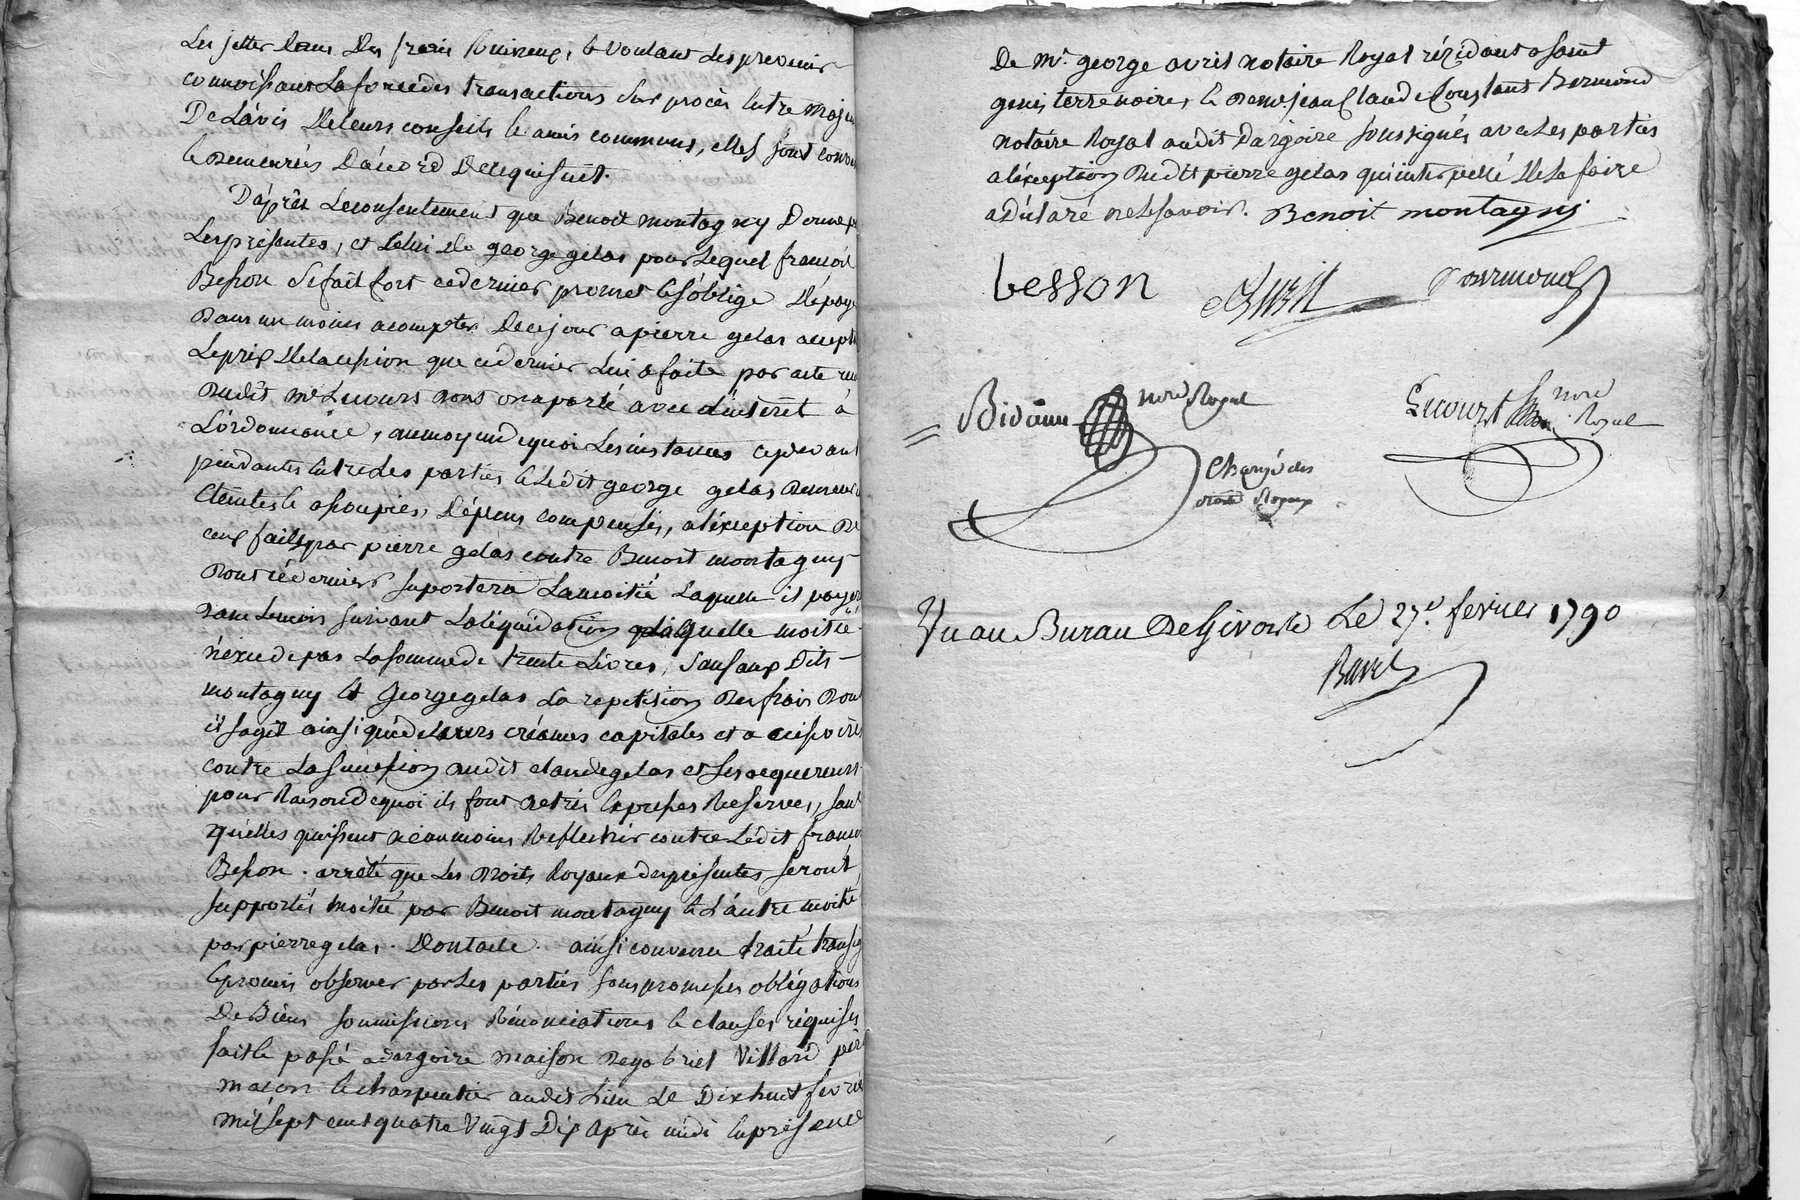 Les jetter dans des frais Ruineux, & voulant les prevenir
connoissant La force des transactions sur procès entre majeu
De L'avis de leurs conseils & amis communs, elles sont conve
& demeurées D'accord De cequi suit.
D'après Le consentement que Benoit montagny Donne p
Les présentes, et Celui de george gelas pour Lequel francois
Besson se fait fort ce dernier promet & s'oblige De paye
Dans un mois a compter De ce jour a pierre gelas accept
Le prix De la cession que ce dernier Lui a faite par acte
Dudit me Lecourt avec L'interet à
L'ordonnance, au moyen de quoi Les instances cy devant
pendantes entre Les parties & Ledit george gelas Demeure
Eteintes & assoupies, Dépens compensés, a l'éxception De
ceux faits par pierre gelas contre Benoit montagny
Dont ce dernier suportera La moitié Laquelle il payera
dans Le mois suivant La liquidation Laquelle moitié
n'éxcede pas La somme de trente Livres, sauf aux Dits
montagny & George gelas La repetition Des frais Don
il s'agit ainsi que de Leurs créances capitales et accessoires
contre La succession dudit claude gelas et ses acquereurs
pour Raison de quoi ils font Reserves, sans
qu'elles puissent néanmoins Reflechir contre Ledit franco
Besson. arrêté que Les Droits Royaux des présentes seront
supportés moitié par Benoit montagny & L'autre moitié
par pierre gelas. Dont acte. ainsi convenu traité transig
& promis observer par Les parties sous promesses obligations
De Biens soumissions Rénonciations & clauses réquises
fait & passé a dargoire maison De gabriel Villard père
maçon & charpentier audit Lieu Le Dix huit fevrie
mil sept cent quatre Vingt Dix après midi en présence
De mr. george avril notaire Royal rézidant a saint
genis terre noire, & De me jean Claude Constant Bermond
notaire Royal audit Dargoire soussignés avec Les parties
a L'éxception Dudit pierre gelas qui interpellé De Le faire
a Déclaré ne Le savoir. Benoit montagny
besson Avril
Bidaun nore Royal
Lecourt nore Royal
Chargé des
Vu au Bureau De Givors Le 27.e fevrier 1790